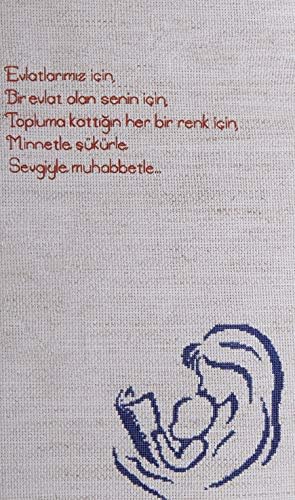 Evlatlarımız için,
Bir evlat olan senin için,
Topluma kattığın her bir renk için,
Minnetle, şükürle
Sevgiyle, muhabbetle...